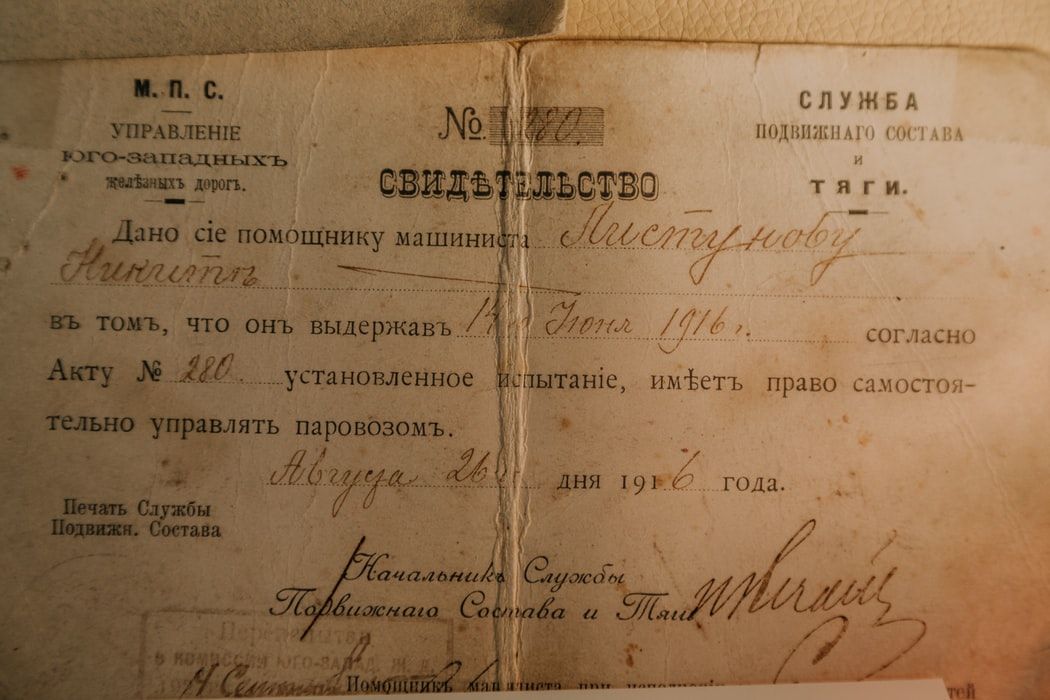 М. П. С.
УПРАВЛЕНІЕ
ЮГО-ЗАПАДНЫХЪ
желѣзныхъ дорогъ.
№. 280.
СВИДѢТЕЛЬСТВО
СЛУЖБА
ПОДВИЖНАГО СОСТАВА
и
ТЯГИ.
Дано сіе помощнику машиниста Листунову
Никитѣ
въ томъ, что онъ выдержавъ 14го Іюня 1916 г. согласно
Акту № 280. установленное испытаніе, имѣетъ право самостоя-
тельно управлять паровозомъ.
Августа 26 дня 1916 года.
Печать Службы
Подвижн. Состава
Начальникъ Службы
Подвижнаго Состава и Тяги
в комиссии Юго-Запад. Ж. д.
Помощникъ машиниста при